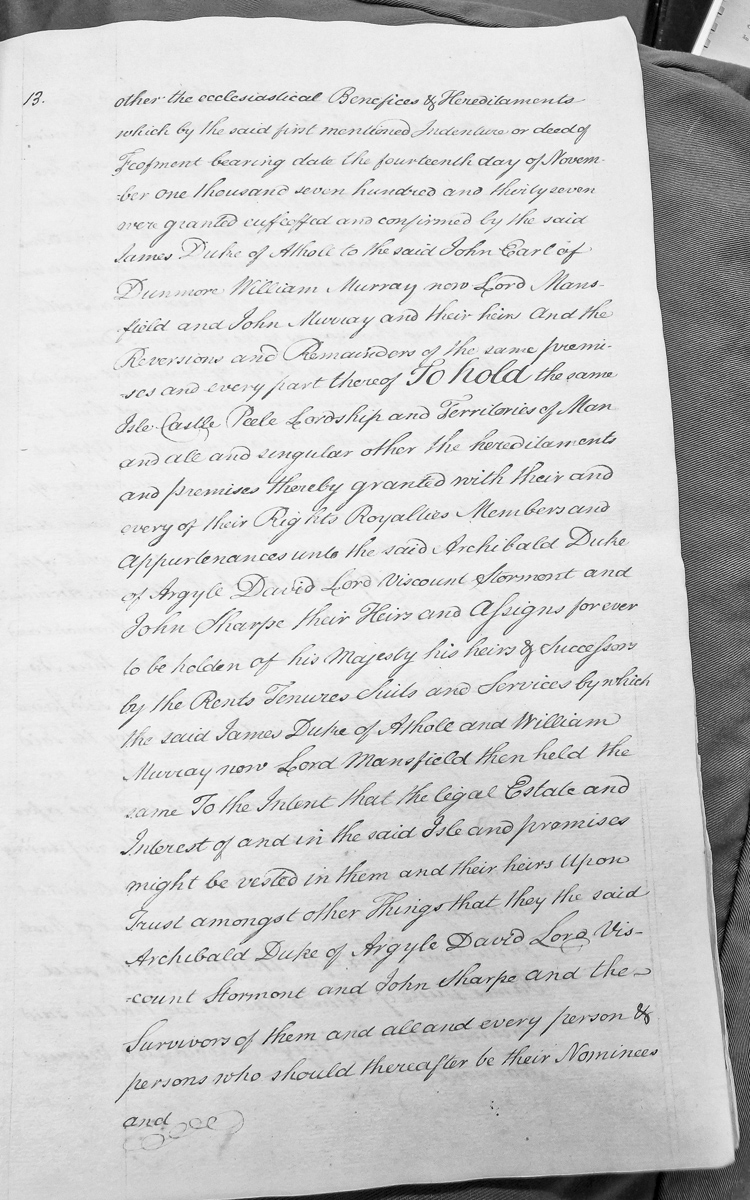 13.
other the ecclesiastical Benefices & Hereditaments
which by the said first mentioned Indenture or deed of
Feofment bearing date the fourteenth day of Novem-
-ber one thousand seven hundred and thirty seven
were granted enffeoffed and confirmed by the said
James Duke of Atholl to the said John Earl of
Dunmore William Murray now Lord Mans-
field and John Murray and their heirs And the
Reversions and Remainders of the same premi-
-ses and every part thereof To hold the same
Isle Castle Peele Lordship and Territories of Man
and all and singular other the hereditaments
and premises thereby granted with their and
every of their Rights Royalties Members and
Appurtenances unto the said Archibald Duke
of Argyle David Lord Viscount Stormont and
John Sharpe their Heirs and Assigns for ever
to be holden of his Majesty his heirs & Successors
by the Rents Tenures Suits and Services by which
the said James Duke of Athole and William
Murray now Lord Mansfield then held the
same To the Intent that the legal Estate and
Interest of and in the said Isle and premises
might be vested in them and their heirs Upon
Trust amongst other Things that they the said
Archibald Duke of Argyle David Lord Vis-
-count Stormont and John Sharpe and the
Survivors of them and all and every person &
persons who should thereafter be their Nominees
and